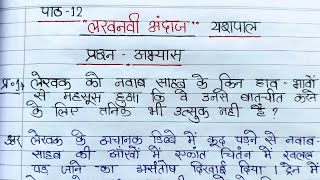 पाठ-12
"लखनवी अंदाज" यशपाल
प्रश्न - अभ्यास
प्र०1 लेखक को नवाब साहब के किन हाव - भावों
से महसूस हुआ कि वे उनसे बातचीत करने
के लिए तनिक भी उत्सुक नहीं है ?
लेखक के अचानक डिब्बे में कूद पड़ने से नवाब-
साहब की आँखों में एकांत चिंतन में खलल
पड़ जाने का असंतोष दिखाई दिया । ट्रेन में